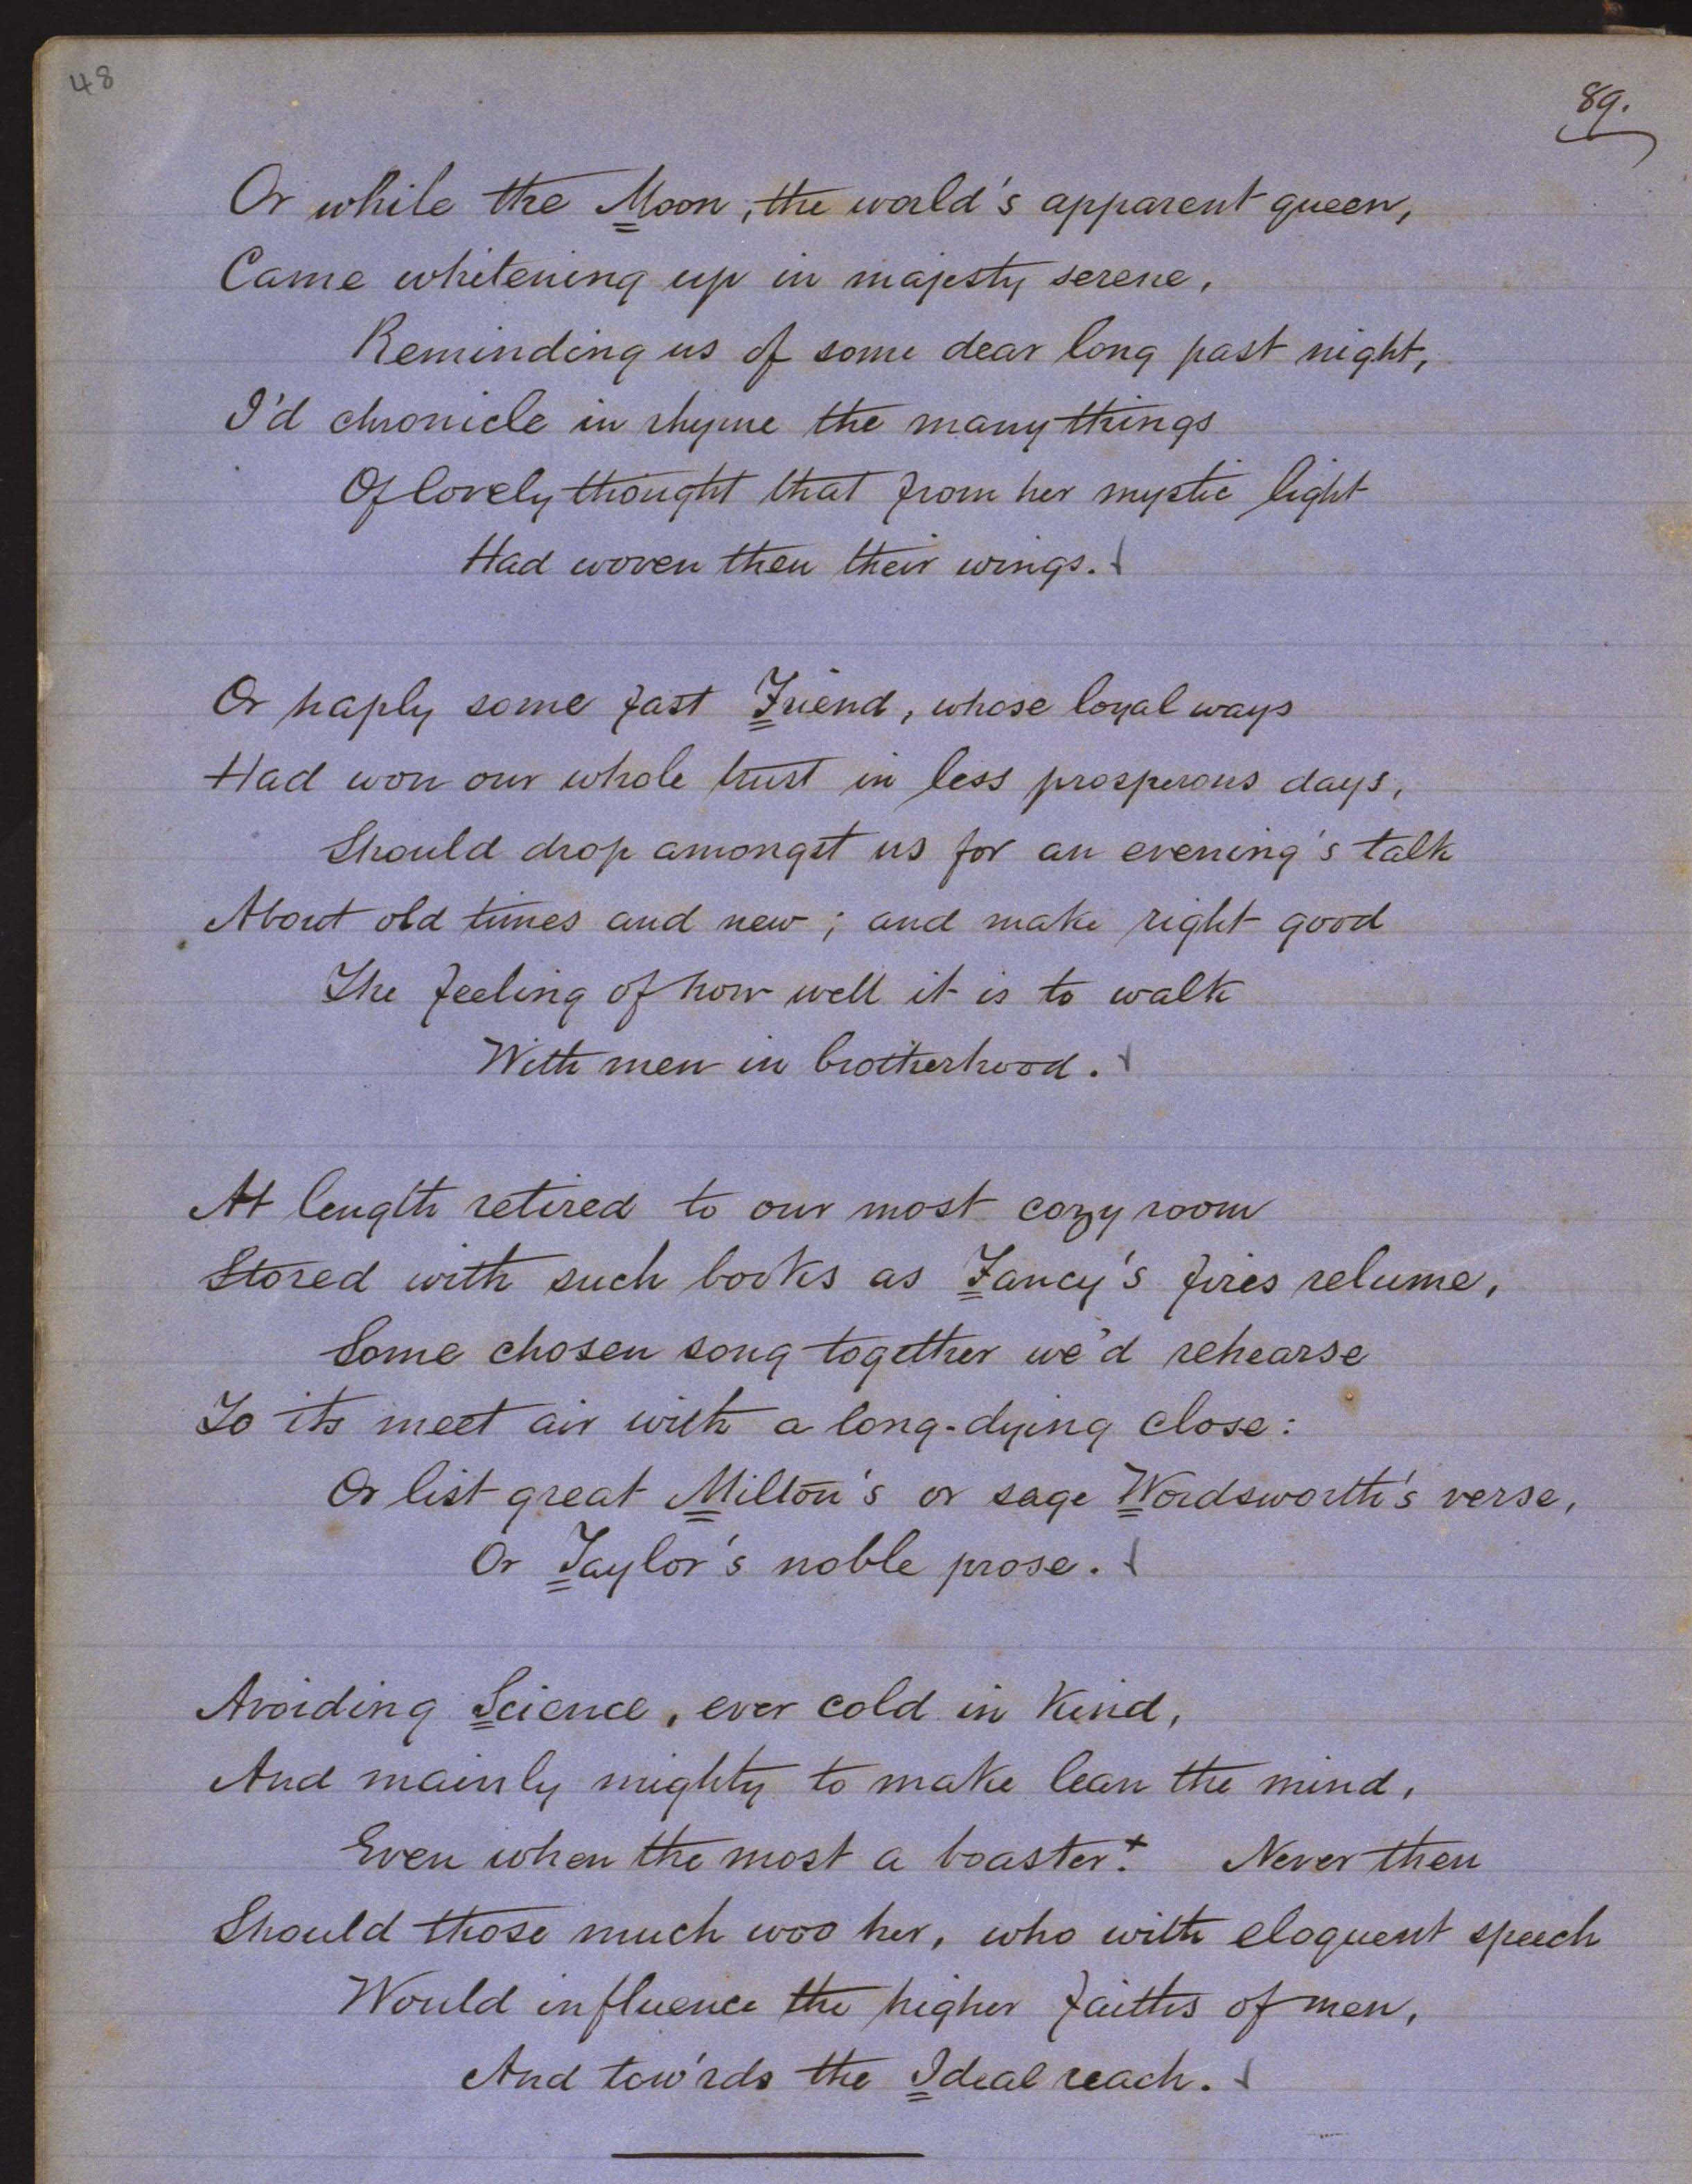 48
89.
Or while the Moon, the world's apparent queen,
Came whitening up in majesty serene,
Reminding us of some dear long past night,
I'd chronicle in rhyme the many things
Of lovely thought that from her mystic light
Had woven then their wings.
Or haply some fast Friend, whose loyal ways
Had won our whole trust in less prosperous days,
Should drop amongst us for an evening's talk
About old times and new; and make right good
The feeling of how well it is to walk
With men in brotherhood.
At length retired to our most cozy room
Stored with such books as Fancy's fires relume,
Some chosen song together we'd rehearse
To its meet air with a long-dying close:
Or list great Milton's or sage Wordsworth's verse,
Or Taylor's noble prose.
Avoiding Science, ever cold in kind,
And mainly mighty to make lean the mind,
Even when the most a boaster.+ Never then
Should those much woo her, who with eloquent speech
Would influence the higher faiths of men,
And tow'rds the Ideal reach.